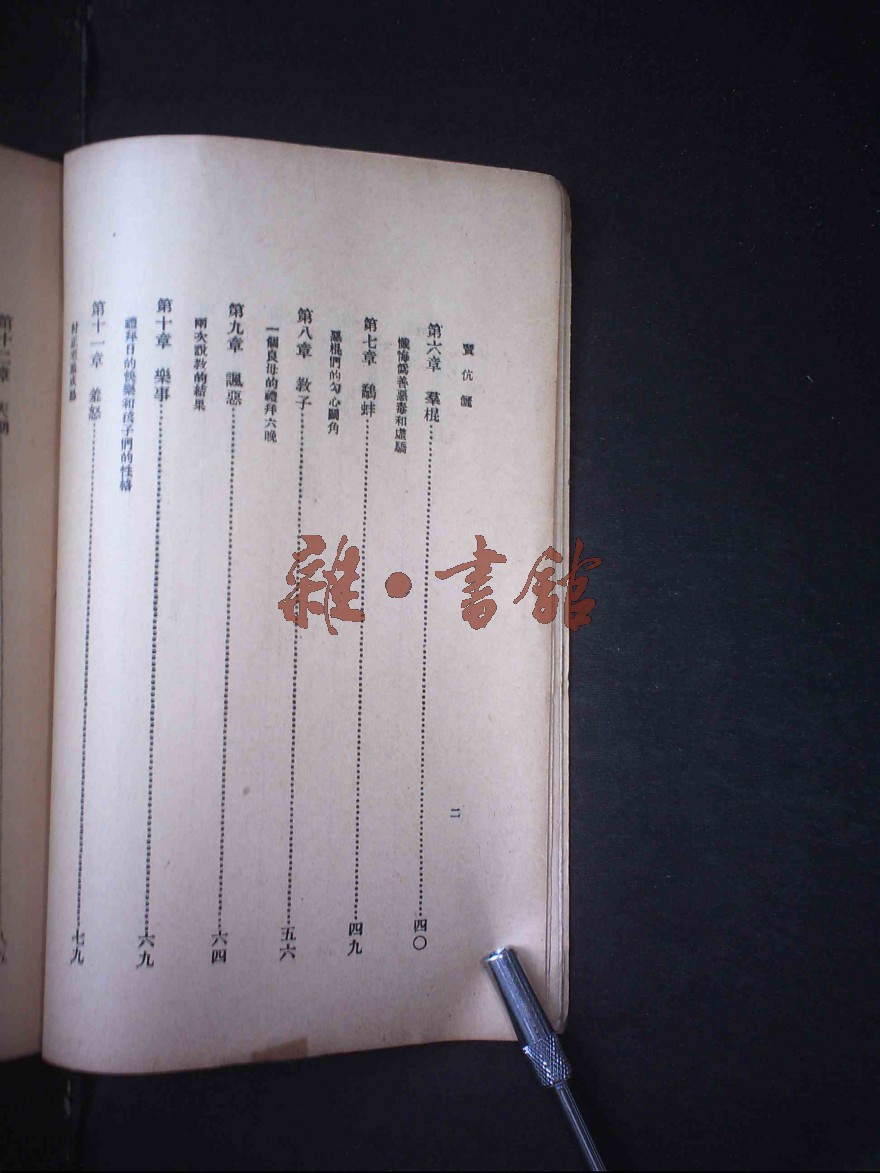 賢伉儷
二
第六章 羣棍……四〇
懺悔僞善惡毒和虛驕
第七章 鷸蚌……四九
惡棍們的勾心鬭角
第八章 教子……五六
一個良母的禮拜六晚
第九章 諷惡……六四
兩次說教的結果
第十章 樂事……六九
禮拜日的娛樂和孩子們的性格
第十一章 羞怒……七九
第十二章
雜·書館